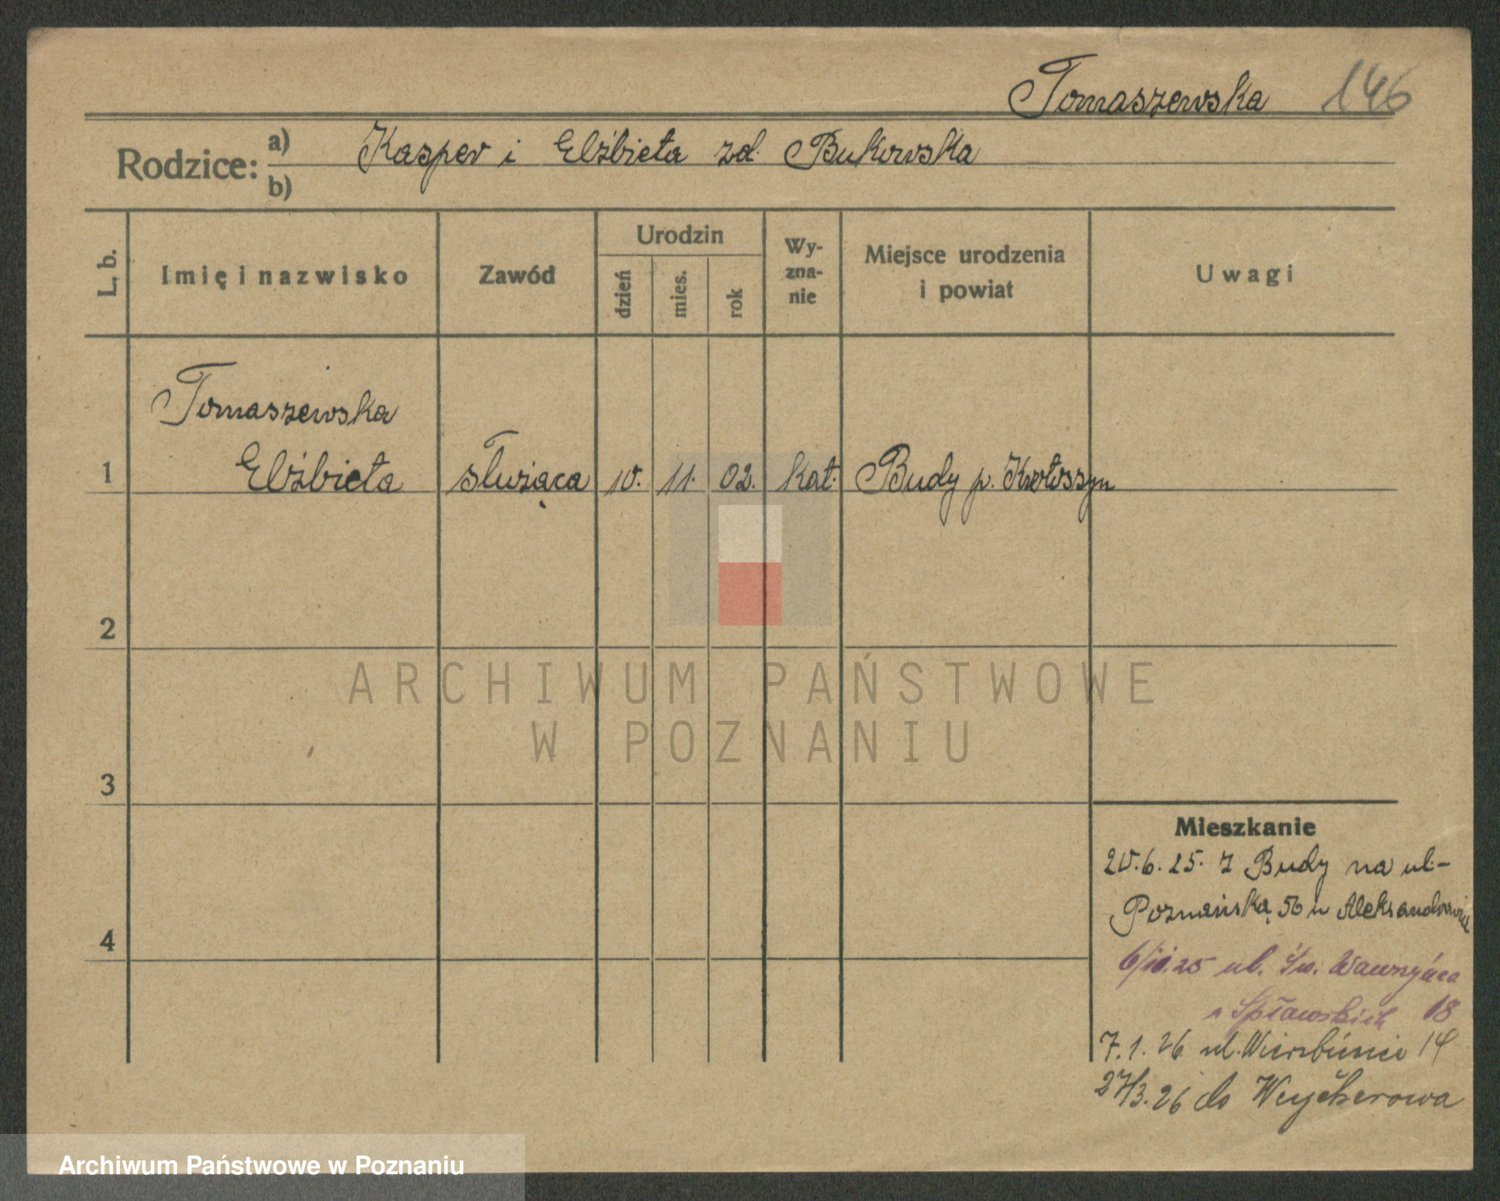 Tomaszewska 146
Rodzice: a) Kasper i Elżbieta zd. Bukowska
b)
L. b.
Imię i nazwisko
Zawód
Urodzin
dzień
mies.
rok
Wy-
zna-
nie
Miejsce urodzenia
i powiat
Uwagi
Tomaszewska
1 Elżbieta służąca 10. 11. 02. kat. Budy p. Krotoszyn
2
ARCHIWUM PAŃSTWOWE
W POZNANIU
3
Mieszkanie
20.6.25. z Budy na ul.
Poznańską 56 u
4
ul. Św. Wawrzyńca
u Spławskich 18
7.1.26 ul. 14
27/3.26 do Wejherowa
Archiwum Państwowe w Poznaniu